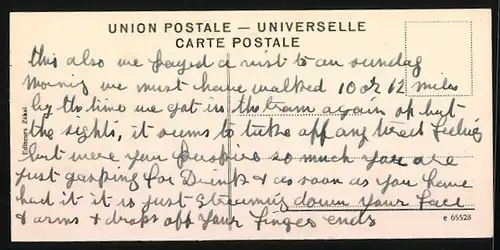 UNION POSTALE — UNIVERSELLE
CARTE POSTALE
this also we payed a visit to on sunday
morning we must have walked 10 or 12 miles
by the time we got in the tram again oh but
the sights, it seems to take off any tired feeling
but were you perspire so much you are
just gasping for Drink & as soon as you have
had it it is just streaming down your face
& arms & drops off your finger ends
Editeurs Zakal
e 65528